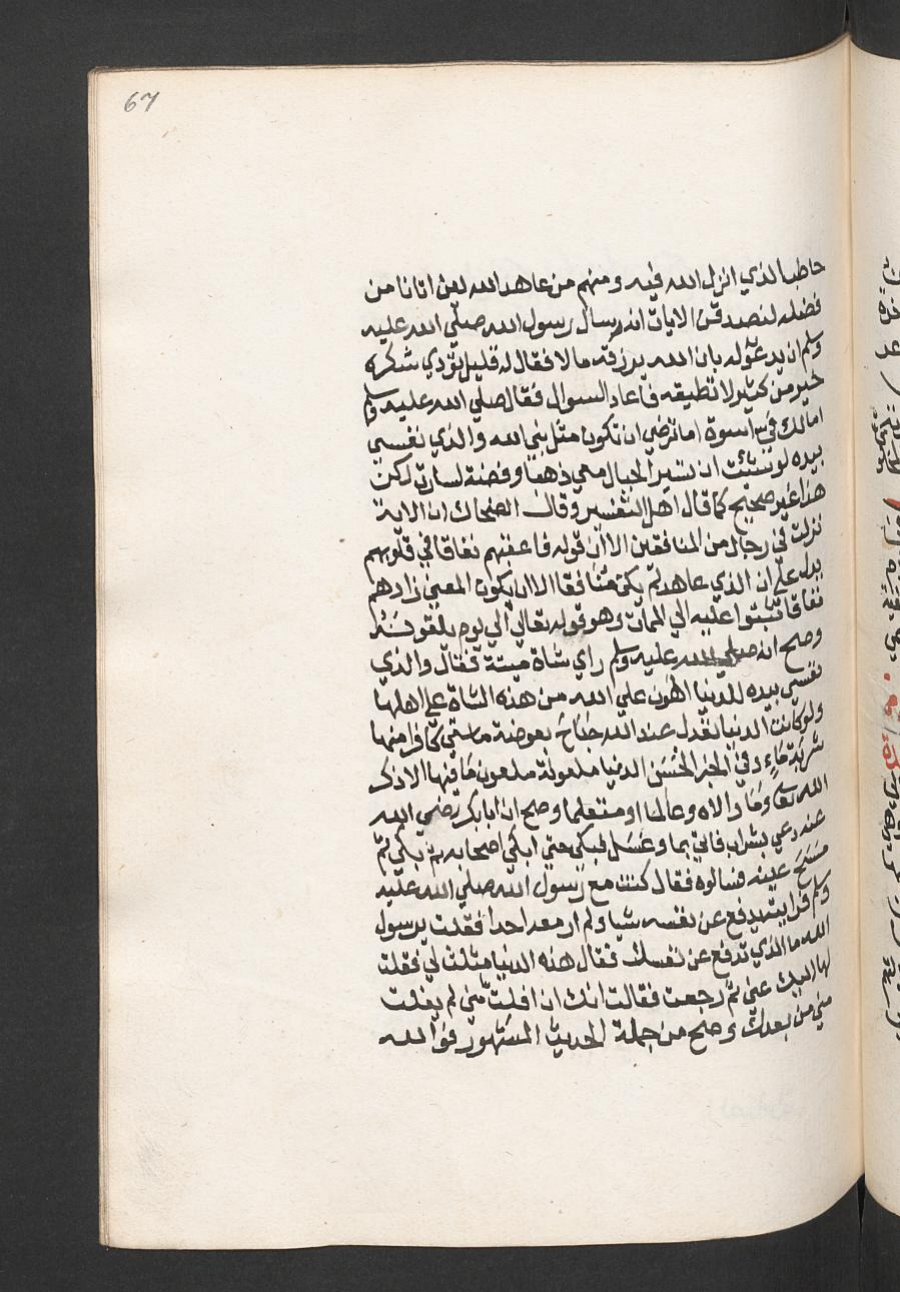 67
حاطبا الذي انزل الله فيه ومنهم من عاهد الله لئن اتانا من
فضله لنصدقن الايات انه سال رسول الله صلي الله عليه
وسلم ان يدعو له بان الله يرزقه مالا فقال له قليل تؤدي شكره
خير من كثير لا تطيقه فاعاد السوال فقال صلي الله عليه وسلم
امالك في اسوة اما ترضي ان تكون مثل نبي الله والذي نفسي
بيده لو شئت ان تسير الجبال معي ذهبا وفضة لسارت لكن
هذا غير صحيح كما قال اهل التفسير وقال الضحاك ان الاية
نزلت في رجال من المنافقين الا ان قوله فاعقبهم نفاقا في قلوبهم
يدل علي ان الذي عاهد لم يكن منافقا الا ان يكون المعني زادهم
نفاقا ثبتوا عليه الي الممات وهو قوله تعالي الي يوم يلقونه
وصح انه صلي الله عليه وسلم راي شاة ميتة فقال والذي
نفسي بيده للدنيا اهون علي الله من هذه الشاة علي اهلها
ولو كانت الدنيا تعدل عند الله جناح بعوضة ما سقي كافرا منها
شربة ماء وفي الخبر الحسن الدنيا ملعونة ملعون ما فيها الا ذكر
الله تعا وما والاه وعالما او متعلما وصح ان ابا بكر رضي الله
عنه دعي بشراب فاتي بما وعسل فبكي حتي ابكي اصحابه ثم بكي ثم
مسح عينه فسالوه فقال كنت مع رسول الله صلي الله عليه
وسلم فرايته يدفع عن نفسه شيا ولم ار معه احدا فقلت يرسول
الله ما الذي تدفع عن نفسك فقال هذه الدنيا مثلت لي فقلت
لها اليك عني ثم رجعت فقالت انك ان افلت مني لم يفلت
مني من بعدك وصح من جملة الحديث المشهور فوالله